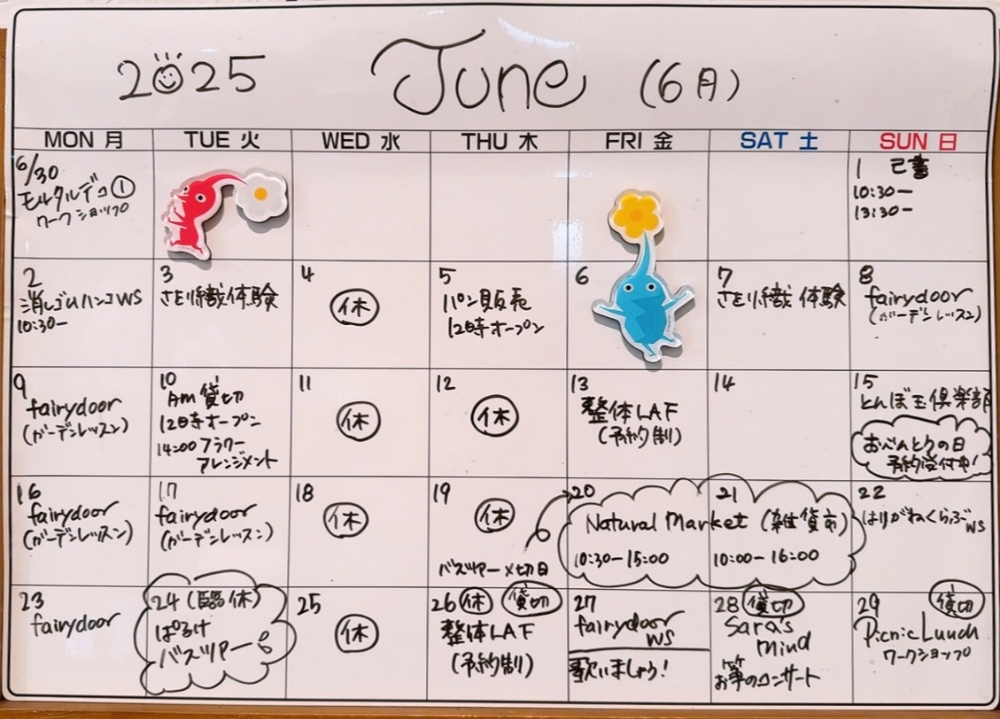 2025 June (6月)
MON 月 TUE 火 WED 水 THU 木 FRI 金 SAT 土 SUN 日
6/30
モルタルデコ①
ワークショップ
1 己書
10:30-
13:30-
2
消しゴムハンコWS
10:30-
3
さをり織体験
4
休
5
パン販売
12時オープン
6
7
さをり織体験
8
fairydoor
(ガーデンレッスン)
9
fairydoor
(ガーデンレッスン)
10
Am 貸切
12時オープン
14:00 フラワー
アレンジメント
11
休
12
休
13
整体LAF
(予約制)
14
15
とんぼ玉倶楽部
おべんとうの日
予約受付中!
16
fairydoor
(ガーデンレッスン)
17
fairydoor
(ガーデンレッスン)
18
休
19
休
バスツアー〆切日
20 21
Natural Market (雑貨市)
10:30-15:00 10:00-16:00
22
はりがねくらぶWS
23
fairydoor
24 (臨休)
ぱるけ
バスツアー
25
休
26 休 貸切
整体LAF
(予約制)
27
fairydoor
WS
歌いましょう!
28 貸切
Sara's
Mind
お箏のコンサート
29 貸切
Picnic Lunch
ワークショップ